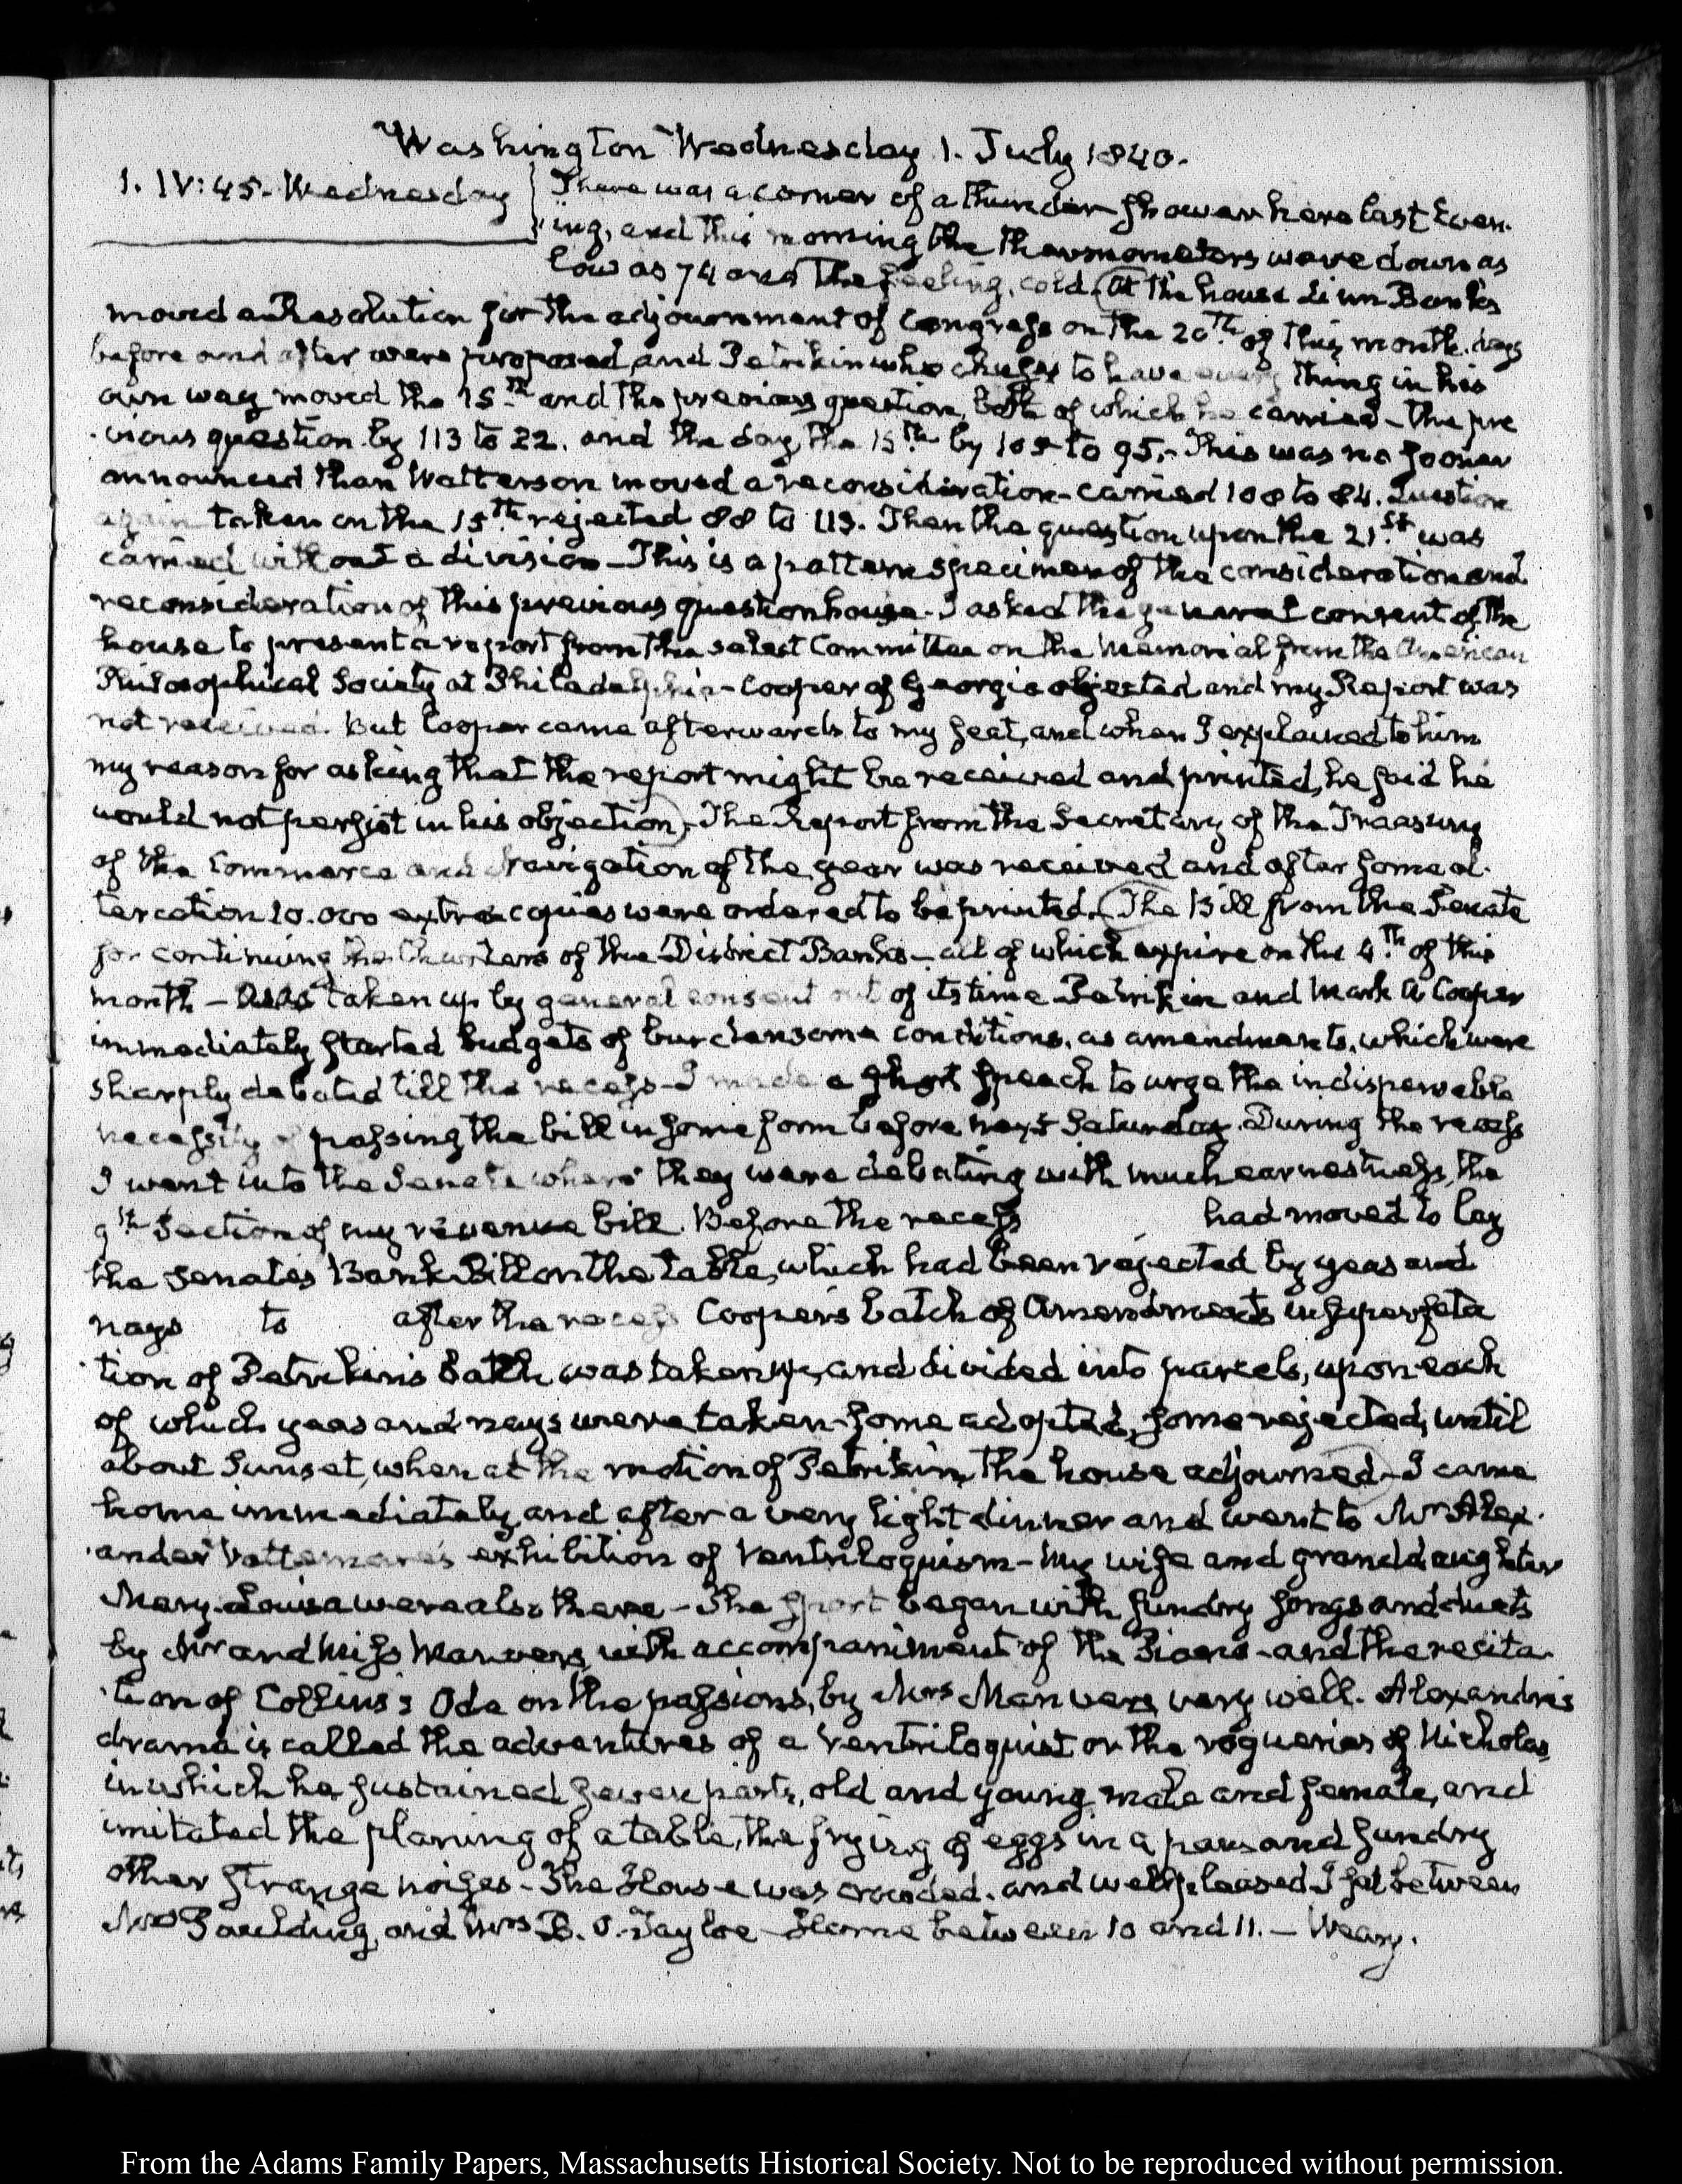 Washington Wednesday 1. July 1840.
1. IV:45. Wednesday
There was a corner of a thunder shower here last Even-
ing, and this morning the thermometers were down as
low as 74 and the feeling, cold. (At the house Linn Banks
moved a Resolution for the adjournment of Congress on the 20th of this month. days
before and after were proposed, and Petrikin who chuses to have every thing in his
own way moved the 15th and the previous question, both of which he carried - the pre
vious question by 113 to 22. and the day, the 15th by 105 to 95. - This was no sooner
announced than Watterson moved a reconsideration - carried 108 to 84. Question
again taken on the 15th rejected 88 to 113. Then the question upon the 21st was
carried without a division - This is a pattern specimen of the consideration and
reconsideration of this previous question house - I asked the general consent of the
house to present a report from the select Committee on the Memorial from the American
Philosophical Society at Philadelphia - Cooper of Georgia objected and my Report was
not received. But Cooper came afterwards to my seat, and when I explained to him
my reason for asking that the report might be received and printed, he said he
would not persist in his objection) - The Report from the Secretary of the Treasury
of the Commerce and Navigation of the year was received and after some al-
tercation 10.000 extra copies were ordered to be printed. (The Bill from the Senate
for continuing the Charters of the District Banks - all of which expire on the 4th of this
month - was taken up by general consent out of its time Petrikin and Mark A Cooper
immediately started budgets of burdensome conditions, as amendments, which were
sharply debated till the recess - I made a short speech to urge the indispensable
necessity of passing the bill in some form before next Saturday. During the recess
I went into the Senate where they were debating with much earnestness, the
9th Section of my revenue bill. Before the recess had moved to lay
the Senate's Bank Bill on the table, which had been rejected by yeas and
nays to after the recess Cooper's batch of Amendments in superfeta
tion of Petrikin's batch was taken up, and divided into parcels, upon each
of which yeas and nays were taken - some adopted, some rejected, until
about Sunset, when at the motion of Petrikin, the house adjourned) - I came
home immediately, and after a very light dinner and went to Mr Alex-
ander Vattemare's exhibition of Ventriloquism - My wife and granddaughter
Mary-Louisa were also there - The sport began with sundry songs and duets
by Mr and Miss Manvers, with accompaniment of the Piano - and the recita-
tion of Collins's Ode on the passions, by Mrs Manvers, very well. Alexandre's
drama is called the adventures of a Ventriloquist or the rogueries of Nicholas,
in which he sustained seven parts, old and young, male and female, and
imitated the planing of a table, the frying of eggs in a pan and sundry
other strange noises - The House was crowded, and well pleased I sat between
Mrs Paulding, and Mrs B. O. Tayloe - Home between 10 and 11. - Weary.
From the Adams Family Papers, Massachusetts Historical Society. Not to be reproduced without permission.